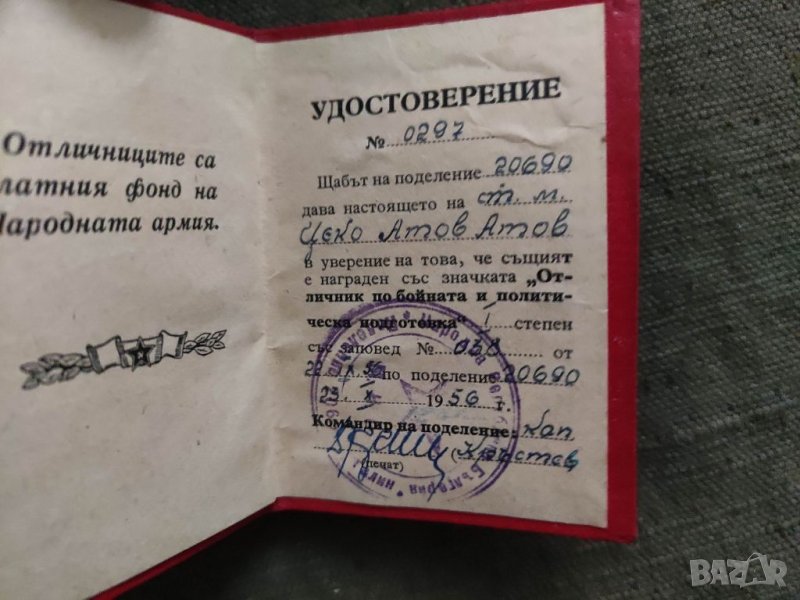 Отличниците са
латния фонд на
Народната армия.
УДОСТОВЕРЕНИЕ
№ 0297
Щабът на поделение 20690
дава настоящето на ст. м.
Цеко Атов Атов
в уверение на това, че същият
е награден със значката „От-
личник по бойната и полити-
ческа подготовка“ I степен
със заповед № 030 от
22. IX 56 по поделение 20690
22. X 1956 г.
Командир на поделение: Кап
(печат) (Кръстев
BAZAR
bg